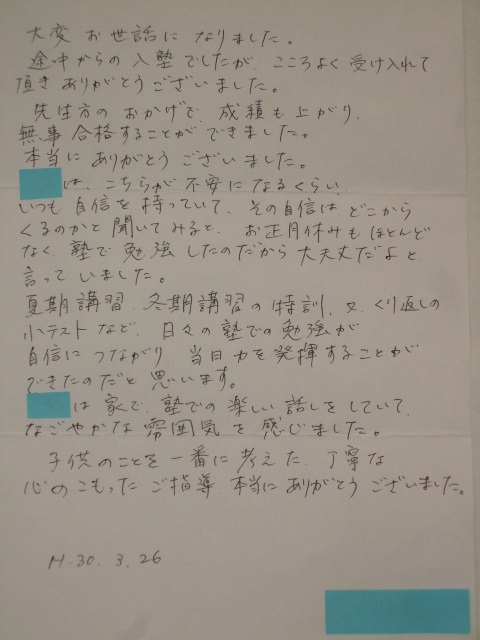 大変 お世話に なりました。
途中からの 入塾でしたが、こころよく 受け入れて
頂き ありがとうございました。
先生方の おかげで、成績も 上がり、
無事 合格することが できました。
本当に ありがとう ございました。
は、こちらが 不安に なるくらい、
いつも 自信を 持っていて、その自信は どこから
くるのかと 聞いてみると、お正月休みも ほとんど
なく、塾で 勉強 したのだから 大丈夫だよ と
言って いました。
夏期講習、冬期講習の 特訓、又、くり返しの
小テスト など、日々の 塾での 勉強が
自信に つながり、当日 力を 発揮することが
できたのだと 思います。
は 家で、塾での 楽しい 話しを していて、
なごやかな 雰囲気を 感じました。
子供のことを 一番に 考えた、丁寧な
心の こもった ご指導、本当に ありがとう ございました。
H.30.3.26